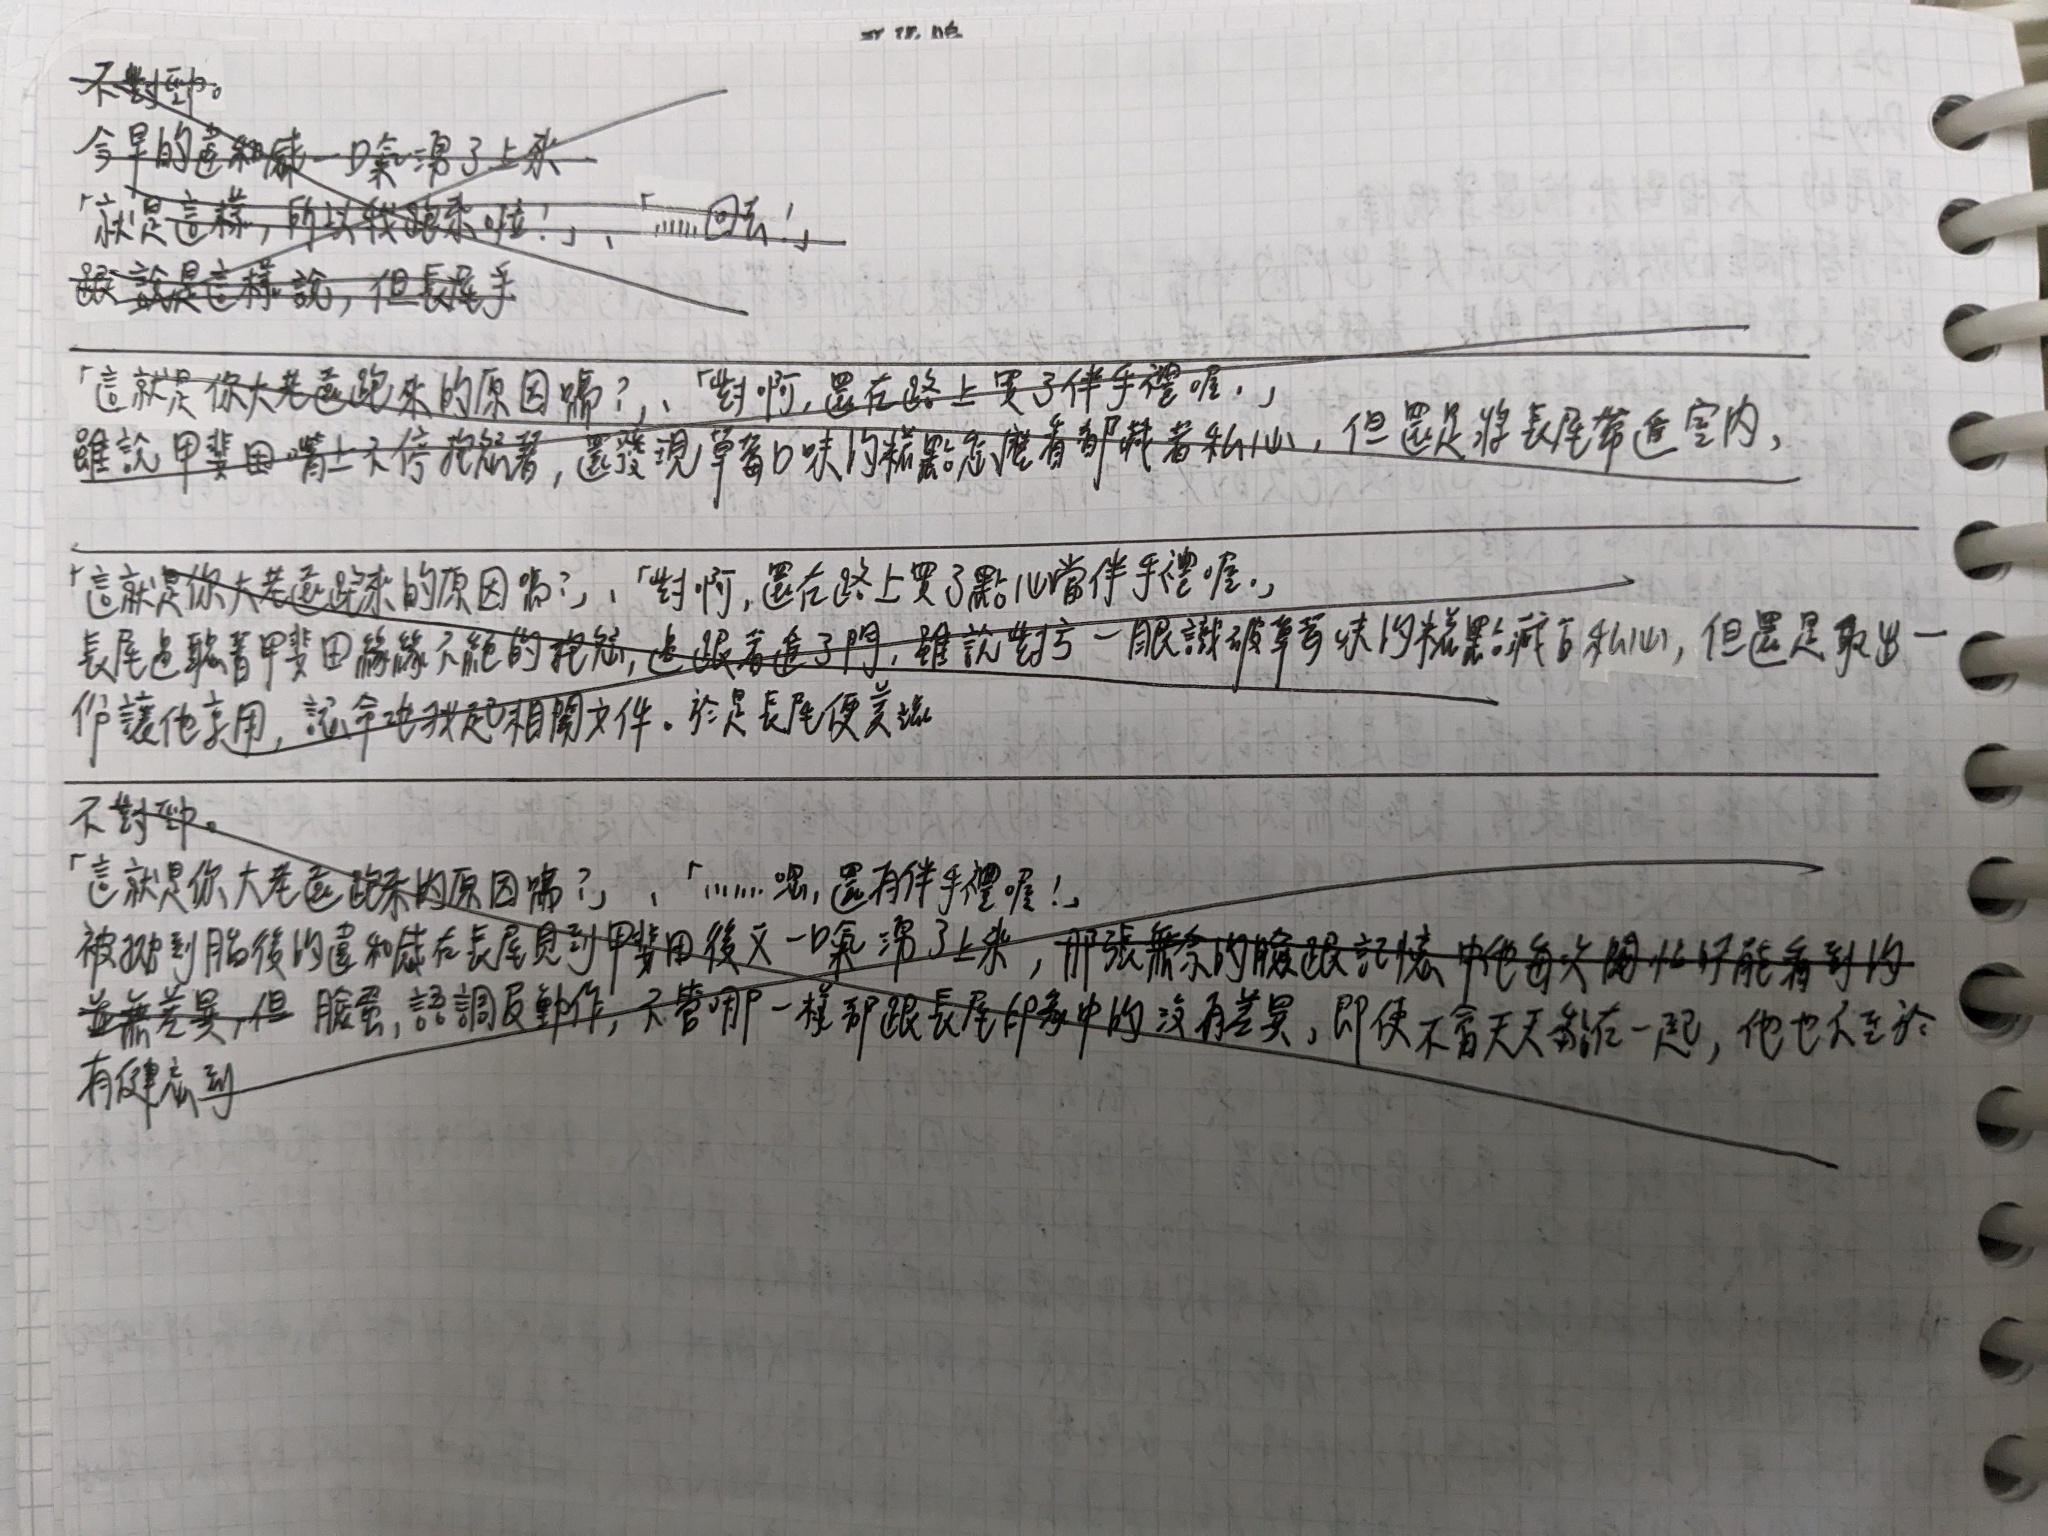 不對勁。
今早的違和感一口氣湧了上來
「就是這樣，所以我跑來啦！」、「……回去！」
跟說是這樣說，但長尾手
「這就是你大老遠跑來的原因嗎？」、「對啊，還在路上買了伴手禮喔。」
雖說甲斐田嘴上不停抱怨著，還發現草莓口味的糕點怎麼看都藏著私心，但還是將長尾帶進室內，
「這就是你大老遠跑來的原因嗎？」、「對啊，還在路上買了點心當伴手禮喔。」
長尾邊聽著甲斐田緣緣不絕的抱怨，邊跟著進了門，雖說對方一眼識破草莓味的糕點藏有私心，但還是取出一
份讓他享用，認命地找起相關文件。於是長尾便美滋
不對勁。
「這就是你大老遠跑來的原因嗎？」、「……嗯，還有伴手禮喔！」
被拋到腦後的違和感在長尾見到甲斐田後又一口氣湧了上來，那張無奈的臉跟記憶中他每次開 能看到的
並無差異，但 臉蛋，語調及動作，不管哪一樣都跟長尾印象中的沒有差異，即使不會天天黏在一起，他也不至於
有健忘到